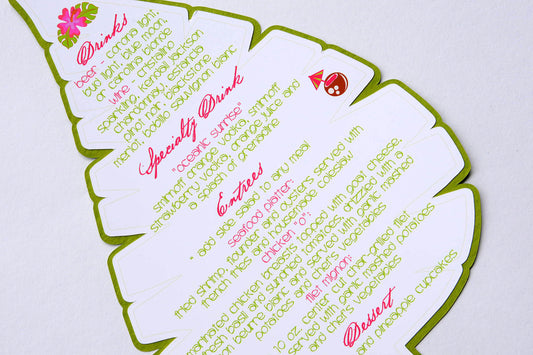 Drinks
beer - corona light,
bud light, blue moon,
& banana blonde
wine - cristalino
sparkling, kendall jackson
chardonnay, estancia
pinot noir, blackstone
merlot, babllo sauvignon blanc
Specialty Drink
"oceanic sunrise"
smirnoff orange vodka, smirnoff
strawberry vodka, orange juice and
a splash of grenadine
Entrees
* add side salad to any meal
seafood platter:
fried shrimp, flounder and oysters, served with
french fries and housemade coleslaw
chicken "o":
marinated chicken breast, topped with goat cheese,
fresh basil and sundried tomatoes, drizzled with a
lemon beurre blanc and served with garlic mashed
potatoes and chef's vegetables
filet mignon:
10 oz. center cut char-grilled filet
served with garlic mashed potatoes
and chef's vegetables
Dessert
and pineapple cupcakes